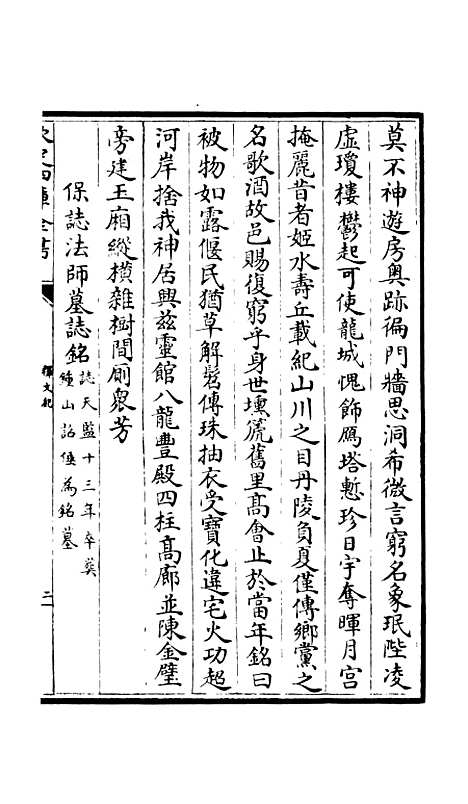 莫不神遊房奧跡徧門牆思洞希微言窮名象珉陛凌
虛瓊樓鬱起可使龍城愧飾鴈塔慙珍日宇奪暉月宮
掩麗昔者姬水壽丘載紀山川之目丹陵負夏僅傳鄉黨之
名歌酒故邑賜復窮乎身世壎篪舊里髙會止於當年銘曰
被物如露偃民猶草解髻傳珠抽衣受寶化違宅火功超
河岸捨我神居興兹靈館八龍豊殿四柱髙廊並陳金壁
旁建玉廂縱横雜樹間厠衆芳
保誌法師墓誌銘
誌天監十三年卒葬
鍾山詔倕為銘墓
欽定四庫全書
釋文紀
二